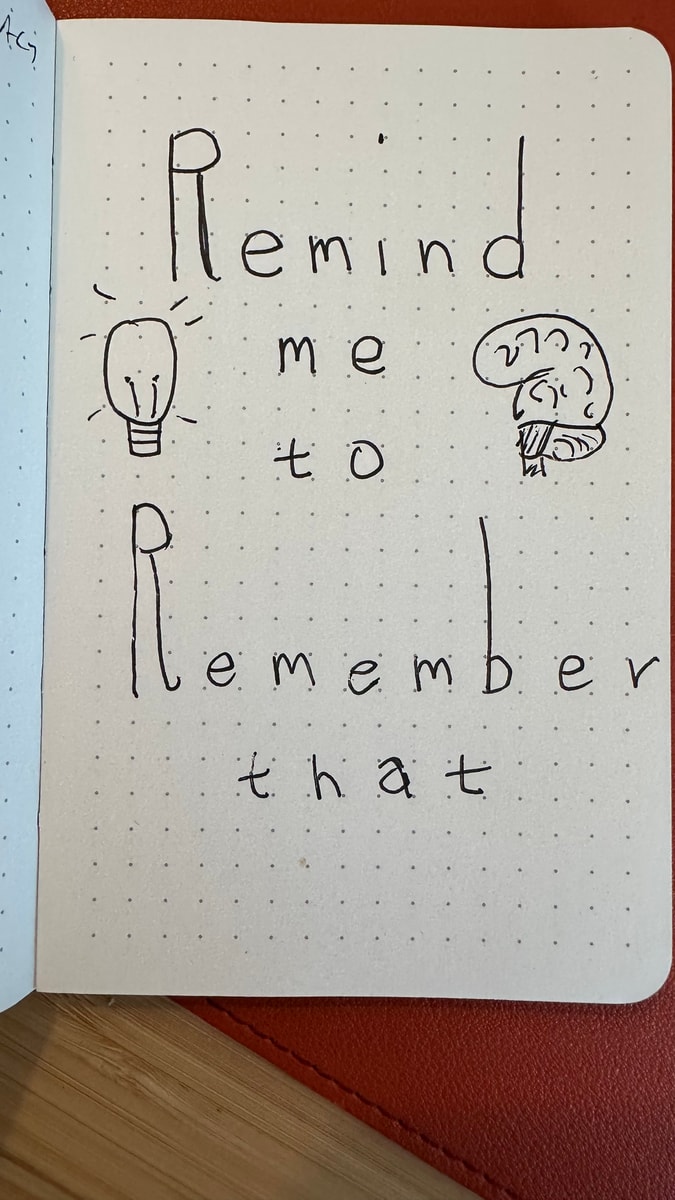 Remind
me
to
Remember
that